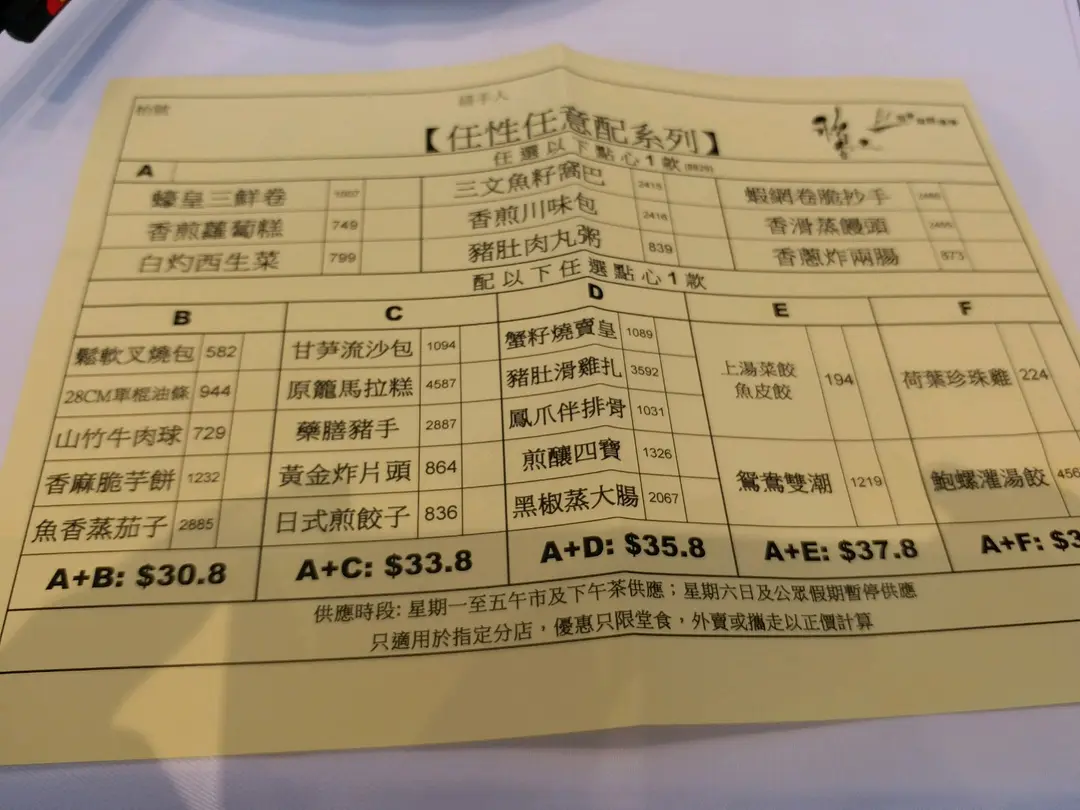 枱號 經手人
【任性任意配系列】
A 任選以下點心1款
蠔皇三鮮卷 三文魚籽窩巴 2415 蝦網卷脆抄手
香煎蘿蔔糕 749 香煎川味包 2416 香滑蒸饅頭
白灼西生菜 799 豬肚肉丸粥 839 香蔥炸兩腸 873
配以下任選點心1款
B C D E F
鬆軟叉燒包 582 甘笋流沙包 1094 蟹籽燒賣皇 1089 上湯菜餃 魚皮餃 194 荷葉珍珠雞 224
28CM單棍油條 944 原籠馬拉糕 4587 豬肚滑雞扎 3592
山竹牛肉球 729 藥膳豬手 2887 鳳爪伴排骨 1031
香麻脆芋餅 1232 黃金炸片頭 864 煎釀四寶 1326 鴛鴦雙潮 1219 鮑螺灌湯餃 456
魚香蒸茄子 2885 日式煎餃子 836 黑椒蒸大腸 2067
A+B: $30.8 A+C: $33.8 A+D: $35.8 A+E: $37.8 A+F: $3
供應時段: 星期一至五午市及下午茶供應；星期六日及公眾假期暫停供應
只適用於指定分店，優惠只限堂食，外賣或攜走以正價計算